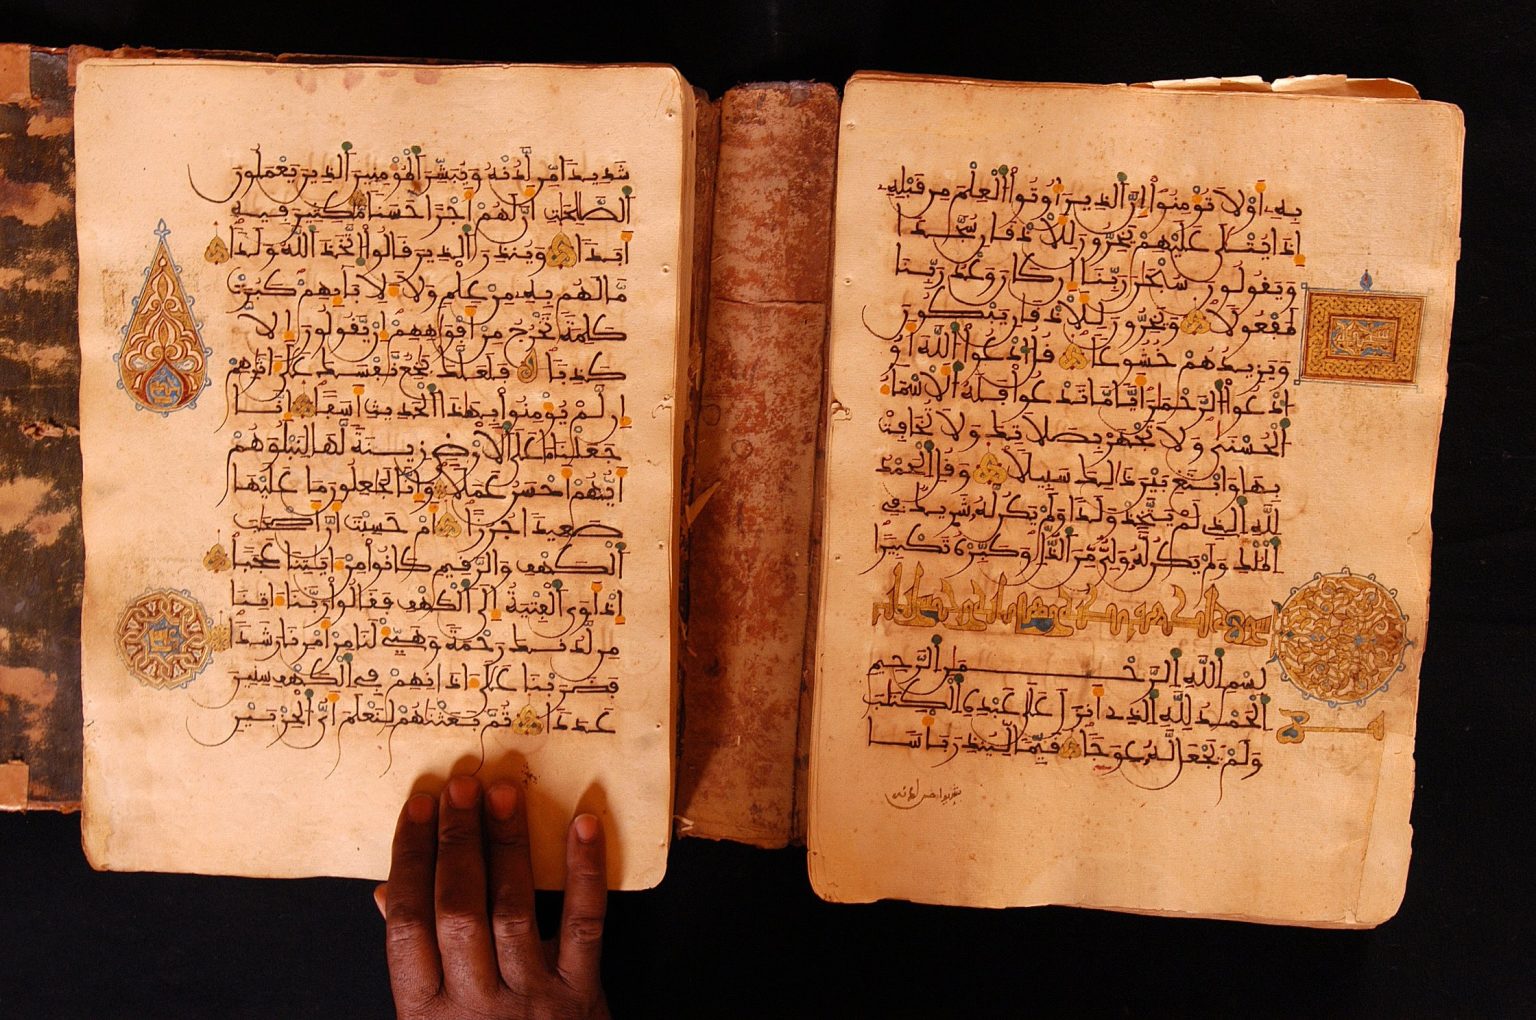 بِهِۦٓ أَوْ لَا تُومِنُوٓا۟ إِنَّ ٱلَّذِينَ أُوتُوا۟ ٱلْعِلْمَ مِن قَبْلِهِۦٓ
إِذَا يُتْلَىٰ عَلَيْهِمْ يَخِرُّونَ لِلَاذْقَانِ سُجَّدًا
وَيَقُولُونَ سُبْحَٰنَ رَبِّنَآ إِن كَانَ وَعْدُ رَبِّنَا
لَمَفْعُولًا وَيَخِرُّونَ لِلَاذْقَانِ يَبْكُونَ
وَيَزِيدُهُمْ خُشُوعًا قُلُ ٱدْعُوا۟ ٱللَّهَ أَوُ
ٱدْعُوا۟ ٱلرَّحْمَٰنَ أَيًّا مَّا تَدْعُوا۟ فَلَهُ ٱلَاسْمَآءُ
ٱلْحُسْنَىٰ وَلَا تَجْهَرْ بِصَلَاتِكَ وَلَا تُخَافِتْ
بِهَا وَٱبْتَغِ بَيْنَ ذَٰلِكَ سَبِيلًا وَقُلِ ٱلْحَمْدُ
لِلَّهِ ٱلَّذِي لَمْ يَتَّخِذْ وَلَدًا وَلَمْ يَكُن لَّهُۥ شَرِيكٌ فِي
ٱلْمُلْكِ وَلَمْ يَكُن لَّهُۥ وَلِيٌّ مِّنَ ٱلذُّلِّ وَكَبِّرْهُ تَكْبِيرًا
بِسْمِ ٱللَّهِ ٱلرَّحْمَٰنِ ٱلرَّحِيمِ
ٱلْحَمْدُ لِلَّهِ ٱلَّذِي أَنزَلَ عَلَىٰ عَبْدِهِ ٱلْكِتَٰبَ
وَلَمْ يَجْعَل لَّهُۥ عِوَجًا قَيِّمًا لِّيُنذِرَ بَأْسًا
شَدِيدًا مِّن لَّدُنْهُ وَيُبَشِّرَ ٱلْمُؤْمِنِينَ ٱلَّذِينَ يَعْمَلُونَ
ٱلصَّٰلِحَٰتِ أَنَّ لَهُمْ أَجْرًا حَسَنًا مَّٰكِثِينَ فِيهِ
أَبَدًا وَيُنذِرَ ٱلَّذِينَ قَالُوا۟ ٱتَّخَذَ ٱللَّهُ وَلَدًا
مَّا لَهُم بِهِۦ مِنْ عِلْمٍ وَلَا لِأَبَآئِهِمْ كَبُرَتْ
كَلِمَةً تَخْرُجُ مِنَ اَفْوَٰهِهِمُۥٓ إِن يَّقُولُونَ إِلَّا
كَذِبًا فَلَعَلَّكَ بَٰخِعٌ نَّفْسَكَ عَلَىٰٓ أَثَٰرِهِمُۥٓ
إِن لَّمْ يُؤْمِنُوا۟ بِهَٰذَا ٱلْحَدِيثِ أَسَفًا إِنَّا
جَعَلْنَا مَا عَلَى ٱلَارْضِ زِينَةً لَّهَا لِنَبْلُوَهُمُۥٓ
أَيُّهُمُۥٓ أَحْسَنُ عَمَلًا وَإِنَّا لَجَٰعِلُونَ مَا عَلَيْهَا
صَعِيدًا جُرُزًا أَمْ حَسِبْتَ أَنَّ أَصْحَٰبَ
ٱلْكَهْفِ وَٱلرَّقِيمِ كَانُوا۟ مِنَ اٰيَٰتِنَا عَجَبًا
إِذَ اَوَى ٱلْفِتْيَةُ إِلَى ٱلْكَهْفِ فَقَالُوا۟ رَبَّنَآ ءَاتِنَا
مِن لَّدُنكَ رَحْمَةً وَهَيِّئْ لَنَا مِنَ اَمْرِنَا رَشَدًا
فَضَرَبْنَا عَلَىٰٓ ءَاذَانِهِمْ فِي ٱلْكَهْفِ سِنِينَ
عَدَدًا ثُمَّ بَعَثْنَٰهُمْ لِنَعْلَمَ أَيُّ ٱلْحِزْبَيْنِ